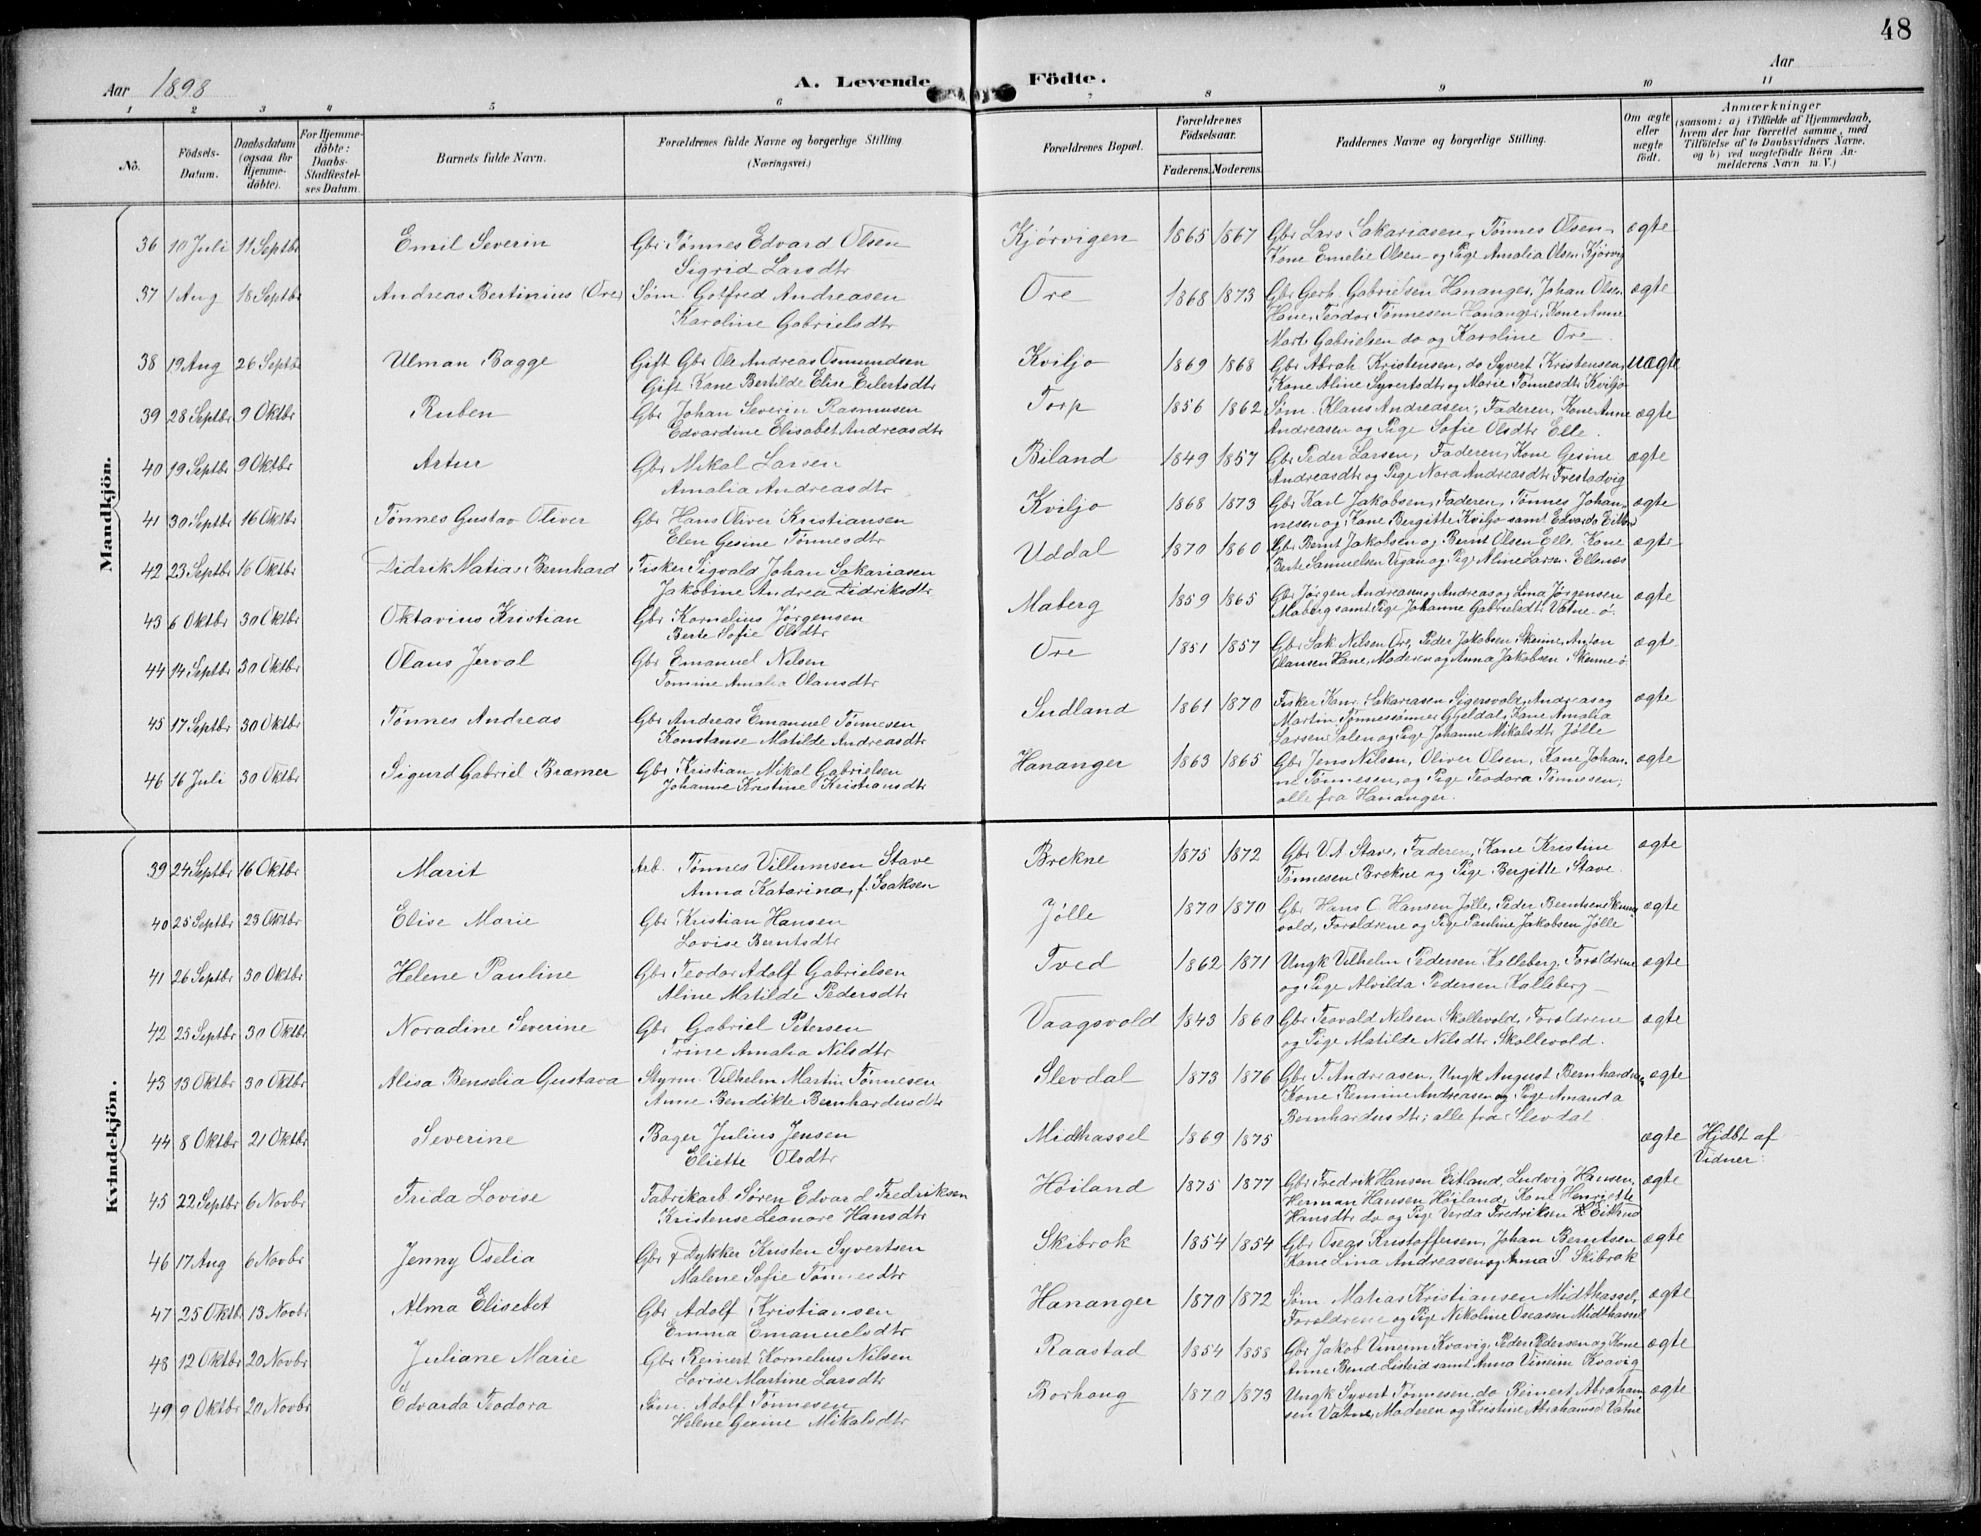 48
Aar 1898
A. Levende Födte.
Aar
1 2 3 4 5 6 7 8 9 10 11
No.
Födsels-Datum.
Daabsdatum (ogsaa for Hjemme-döbte).
For Hjemme-döbte: Daabs-Stadfæstel-ses Datum.
Barnets fulde Navn.
Forældrenes fulde Navne og borgerlige Stilling (Næringsvei.)
Forældrenes Bopæl.
Forældrenes Födselsaar.
Faderens. Moderens.
Faddernes Navne og borgerlige Stilling.
Om ægte eller uægte födt.
Anmærkninger (saasom: a) i Tilfælde af Hjemmedaab, hvem der har forrettet samme, med Tilföielse af to Daabsvidners Navne, og b) ved uægtefödte Börn An-melderens Navn m. V.)
Mandkjön.
36 10 Juli 11 Septbr Emil Severin Gbr Tønnes Edvard Olsen Kjørvigen 1865 1867 Gbr Lars Sakariasen, Tønnes Olsen, ægte
Sigrid Larsdtr Kone Emelie Olsen og Pige Amalia Olsen Kjørvig
37 1 Aug 18 Septbr Andreas Bertinius (Ore) Søm. Gotfred Andreasen Ore 1868 1873 Gbr Gerh. Gabrielsen Hananger, Johan Olsen ægte
Karoline Gabrielsdtr Hane, Teodor Tønnesen Hananger, Kone Anne
Mart Gabrielsen do og Karoline Ore.
38 19 Aug 26 Septbr Ulman Bagge Gift Gbr Ole Andreas Osmundsen Kviljo 1869 1868 Gbr Abrah Kristensen, do Syvert Kristensen, uægte
Gift Kone Bertilde Elise Eilertsdtr Kone Aline Syvertsdtr og Marie Tønnesdtr Kviljo
39 28 Septbr 9 Oktbr Ruben Gbr Johan Severin Rasmusen Torp 1856 1862 Søm. Klaus Andreasen, Faderen, Kone Anne ægte
Edvardine Elisabet Andreasdtr Andreasen og Pige Sofie Olsdtr Elle.
40 19 Septbr 9 Oktbr Artur Gbr Mikal Larsen Biland 1849 1857 Gbr Peder Larsen, Faderen, Kone Gesine ægte
Amalia Andreasdtr Andreasdtr og Pige Nora Andreasdtr Frestadvig
41 30 Septbr 16 Oktbr Tønnes Gustav Oliver Gbr Hans Oliver Kristiansen Kviljo 1868 1873 Gbr Karl Jakobsen, Faderen, Tønnes Johan- ægte
Elen Gesine Tønnesdtr nesen og Kone Bergitte Kviljo samt Edvarda
42 23 Septbr 16 Oktbr Didrik Matias Bernhard Fisker Sigvald Johan Sakariasen Uddal 1870 1860 Gbr Bernt Jakobsen og Bernt Olsen Elle Kone ægte
Jakobine Andrea Didriksdtr Berte Samuelsen Vigan og Pige Aline Larsen Ellenæs
43 6 Oktbr 30 Oktbr Oktavius Kristian Gbr Kornelius Jørgensen Maberg 1859 1865 Gbr Jørgen Andreasen og Andreas og Lina Jørgensen ægte
Berte Sofie Olsdtr Maberg samt Pige Johanne Gabrielsdtr Vatne-ø.
44 14 Septbr 30 Oktbr Olaus Jerval Gbr Emanuel Nilsen Ore 1851 1857 Gbr Sak. Nilsen Ore, Peder Jakobsen Skeime, Anton ægte
Tomine Amalia Olausdtr Olausen Hane, Moderen og Anna Jakobsen Skeime-ø
45 17 Septbr 30 Oktbr Tønnes Andreas Gbr Andreas Emanuel Tønnesen Sudland 1861 1870 Fisker Sakariasen Sigersvold, Andreas og ægte
Konstanse Matilde Andreasdtr Martin Gjeldal, Kone Amalia
Larsen Salen og Pige Johanne Mikalsdtr Jølle
46 16 Juli 30 Oktbr Sigurd Gabriel Bræmer Gbr Kristian Mikal Gabrielsen Hananger 1863 1865 Gbr Jens Nilsen, Oliver Olsen, Kone Johan- ægte
Johanne Kristine Kristiansdtr ne Tønnesen, og Pige Teodora Tønnesen;
alle fra Hananger.
Kvindekjön.
39 24 Septbr 16 Oktbr Marit Arb. Tønnes Villumsen Stave Brekne 1875 1872 Gbr V. A Stave, Faderen, Kone Kristine ægte
Anna Katarina, f. Isaksen Tønnesen Brekne og Pige Bergitte Stave.
40 25 Septbr 23 Oktbr Elise Marie Gbr Kristian Hansen Jølle 1870 1870 Gbr Hans C Hansen Jølle, Peder Berntsen ægte
Lovise Berntsdtr vold, Forældrene og Pige Pauline Jakobsen Jølle
41 26 Septbr 30 Oktbr Helene Pauline Gbr Teodor Adolf Gabrielsen Tved 1862 1871 Ungk Vilhelm Pedersen Kalleberg, Forældrene ægte
Aline Matilde Pedersdtr og Pige Alvilda Pedersen Kalleberg
42 25 Septbr 30 Oktbr Noradine Severine Gbr Gabriel Petersen Vaagsvold 1843 1860 Gbr Teovald Nilsen Skollevold, Forældrene ægte
Trine Amalia Nilsdtr og Pige Matilde Nilsdtr Skollevold.
43 13 Oktbr 30 Oktbr Alisa Benselia Gustava Styrm. Vilhelm Martin Tønnesen Slevdal 1873 1876 Gbr T. Andreasen, Ungk August Bernhardsen, ægte
Anne Bendikte Bernhardusdtr Kone Remine Andreasen og Pige Amanda
Bernhardusdtr; alle fra Slevdal
44 8 Oktbr 21 Oktbr Severine Bager Julius Jensen Midthassel 1869 1875 ægte Hjdbt af
Eliette Olsdtr Vidner.
45 22 Septbr 6 Novbr Frida Lovise Fabrikarb Søren Edvard Fredriksen Høiland 1875 1877 Gbr Fredrik Hansen Eitland, Ludvig Hansen, ægte
Kristense Leonore Hansdtr Herman Hansen Høiland, Kone Henriette
Hansdtr do og Pige Verda Fredriksen
46 17 Aug 6 Novbr Jenny Oselia Gbr f Dykker Kristen Syvertsen Skibrok 1854 1854 Gbr Oseas Kristoffersen, Johan Berntsen ægte
Malene Sofie Tønnesdtr Kone Lina Andreasen og Anna S. Skibrok
47 25 Oktbr 13 Novbr Alma Elisebet Gbr Adolf Kristiansen Hananger 1870 1872 Søm Matias Kristiansen Midthassel, ægte
Emma Emanuelsdtr Forældrene og Pige Nikoline Oseasen Midthassel
48 12 Oktbr 20 Novbr Juliane Marie Gbr Reinert Kornelius Nilsen Raastad 1854 1858 Gbr Jakob Vineim Kvavig, Peder Pedersen og Kone ægte
Lovise Martine Larsdtr Anne Bend. Listeid samt Anna Vineim Kvavig
49 9 Oktbr 20 Novbr Edvarda Teodora Søm. Adolf Tønnesen Borhaug 1870 1873 Ungk Syvert Tønnesen, do Reinert Abraham- ægte
Helene Gesine Mikalsdtr sen Vatne, Moderen og Kristine Abrahamsd Vatne